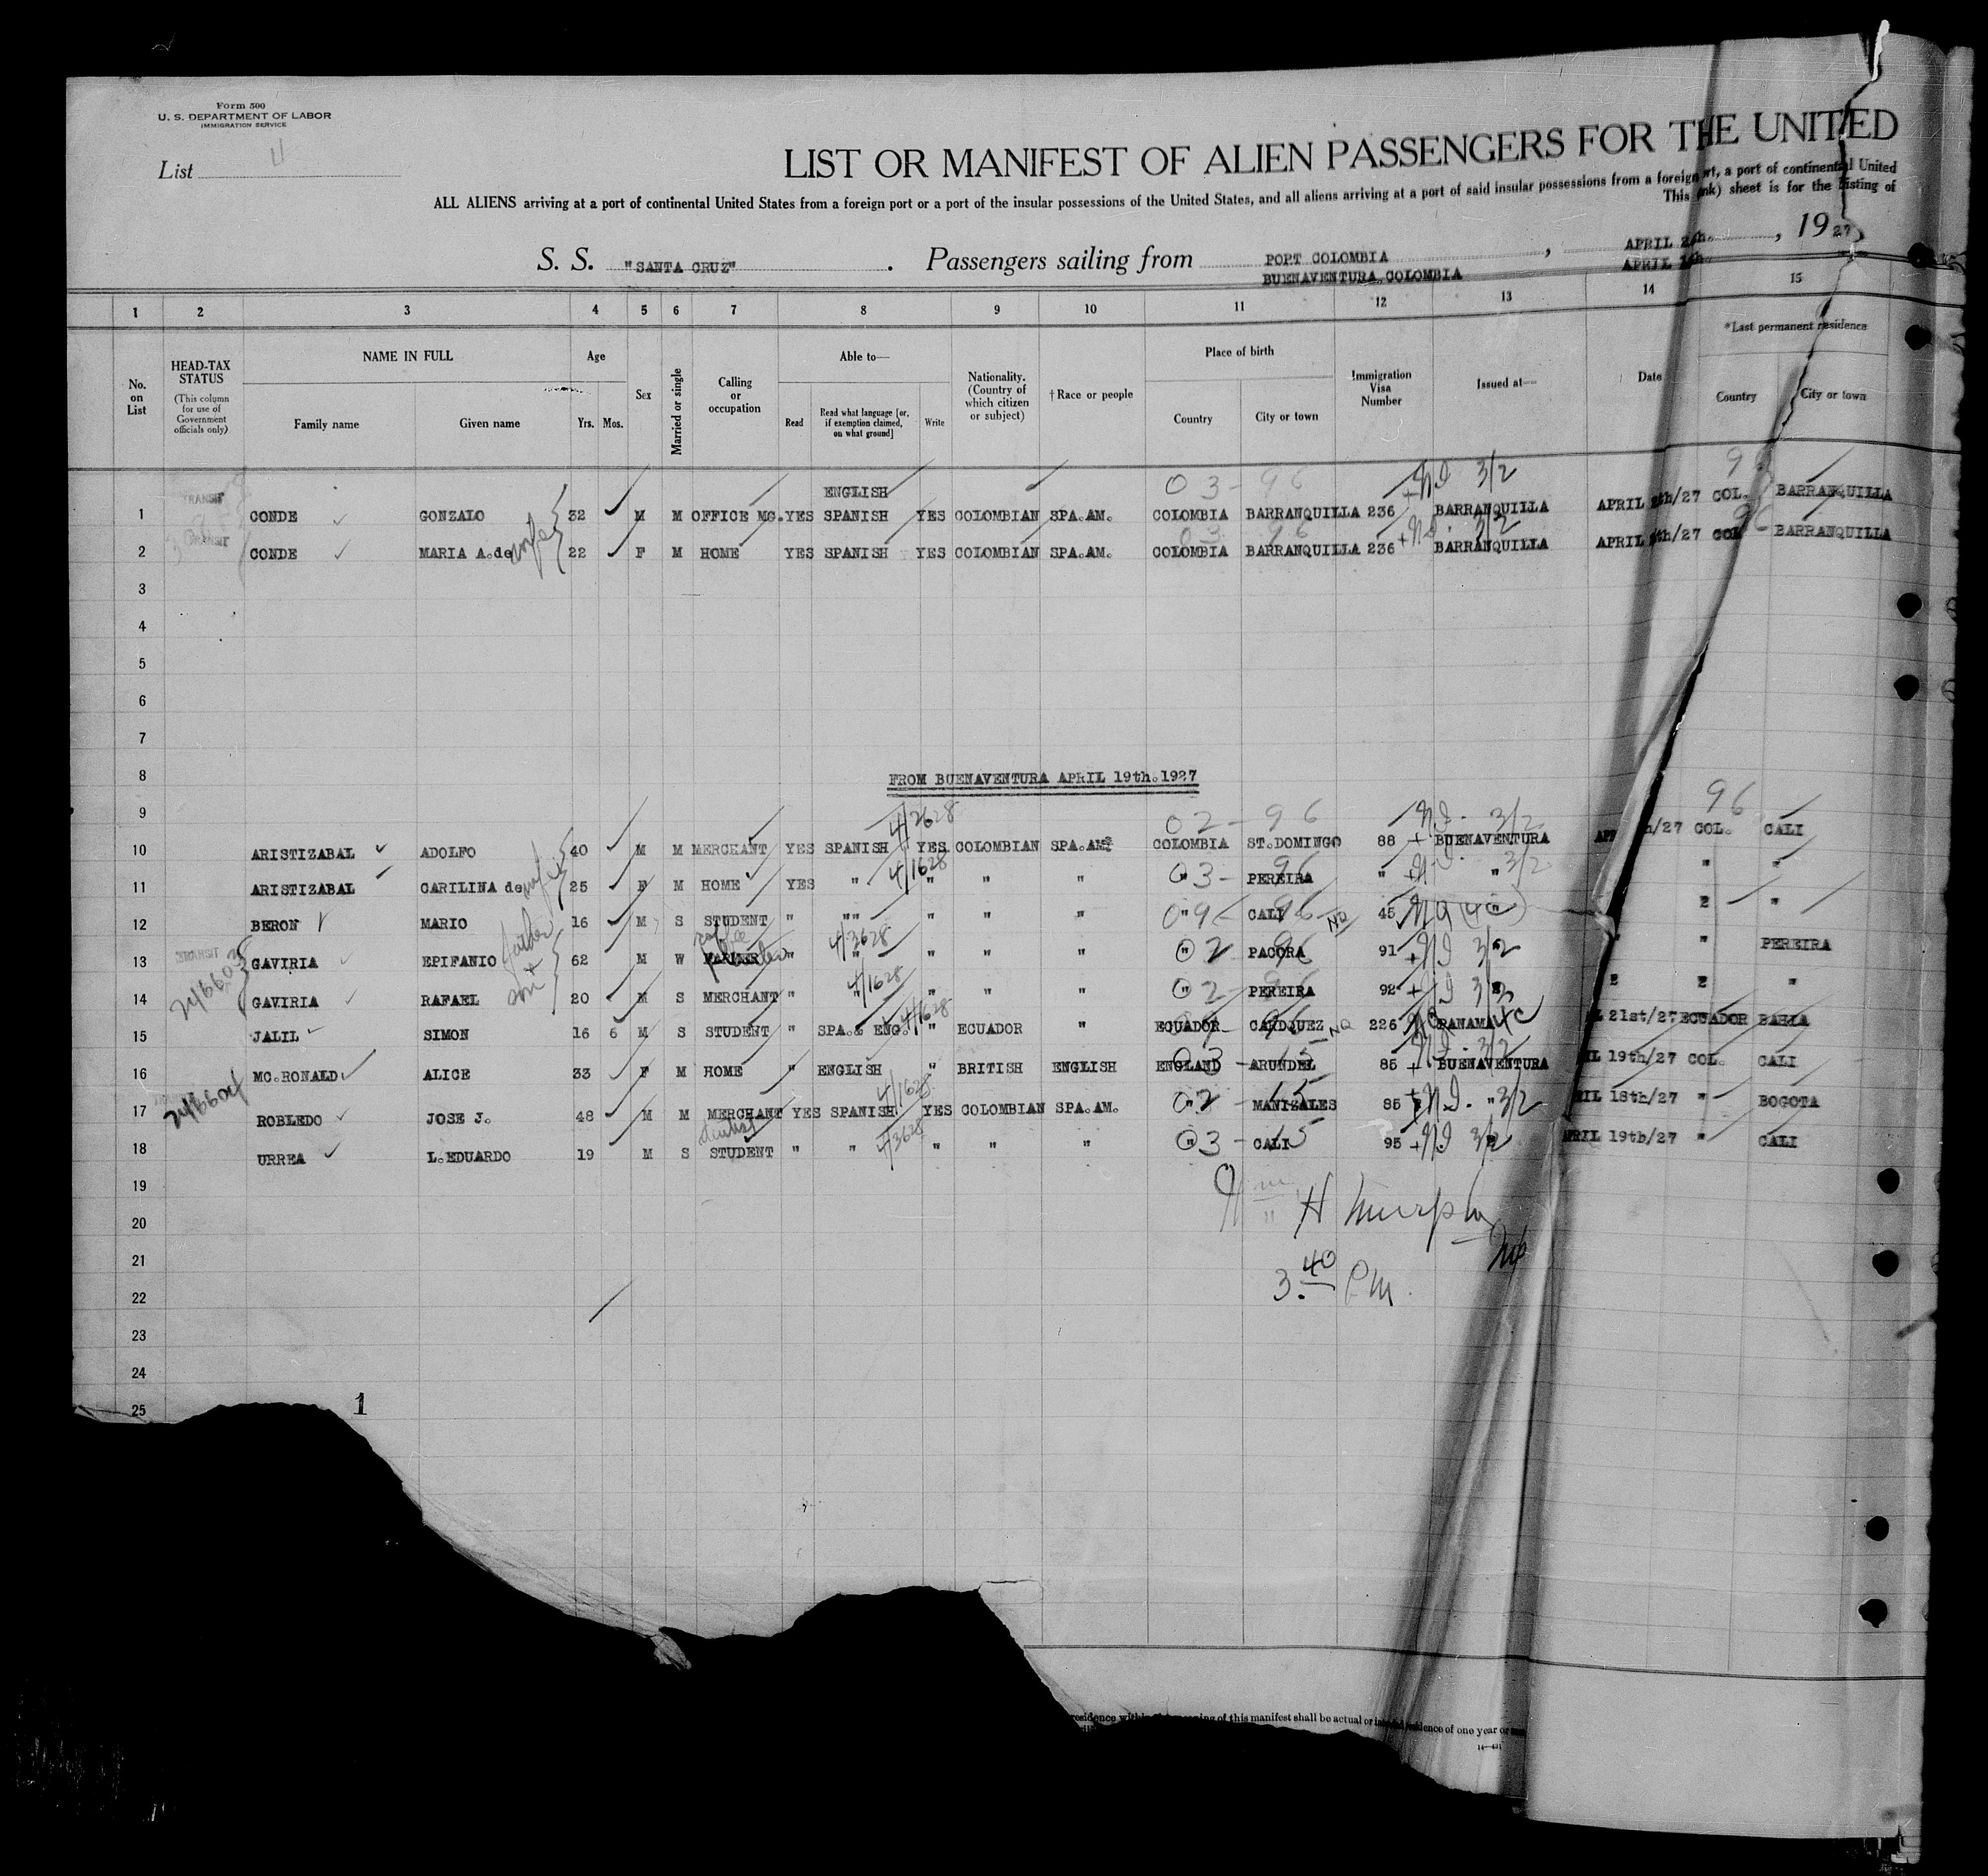 Form 500
U. S. DEPARTMENT OF LABOR
IMMIGRATION SERVICE
List
LIST OR MANIFEST OF ALIEN PASSENGERS FOR THE UNITED
ALL ALIENS arriving at a port of continental United States from a foreign port or a port of the insular possessions of the United States, and all aliens arriving at a port of said insular possessions from a foreign port, a port of continental United
This sheet is for the listing of
S. S. "SANTA CRUZ". Passengers sailing from PORT COLOMBIA, APRIL, 1927
BUENAVENTURA COLOMBIA APRIL
1 2 3 4 5 6 7 8 9 10 11 12 13 14 15
No. on List
HEAD-TAX STATUS (This column for use of Government officials only)
NAME IN FULL Family name Given name
Age Yrs. Mos.
Sex
Married or single
Calling or occupation
Able to— Read Read what language [or, if exemption claimed, on what ground] Write
Nationality. (Country of which citizen or subject)
†Race or people
Place of birth Country City or town
Immigration Visa Number
Issued at—
Date
*Last permanent residence Country City or town
03-96 NI 3/2
TRANSIT ENGLISH
1 CONDE GONZALO 32 M M OFFICE MG. YES SPANISH YES COLOMBIAN SPA.AM. COLOMBIA BARRANQUILLA 236 BARRANQUILLA APRIL th/27 COL. BARRANQUILLA
03 96 NI 3/2
2 CONDE MARIA A.de wife 22 F M HOME YES SPANISH YES COLOMBIAN SPA.AM. COLOMBIA BARRANQUILLA 236 BARRANQUILLA APRIL th/27 COL BARRANQUILLA
3
4
5
6
7
8 FROM BUENAVENTURA APRIL 19th.1927
9 4/2628 02-96 NI 3/2 96
10 ARISTIZABAL ADOLFO 40 M M MERCHANT YES SPANISH YES COLOMBIAN SPA.AM. COLOMBIA ST.DOMINGO 88 BUENAVENTURA h/27 COL. CALI
11 ARISTIZABAL CARILINA de wife 25 F M HOME YES " 4/1628 " " " " 03- PEREIRA 96 " NI " 3/2 " "
12 BERON MARIO 16 M S STUDENT " "" " " " " 09- CALI 96 NO 45 " "
13 TRANSIT GAVIRIA EPIFANIO father & son 62 M W FARMER coffee planter " " 4/3628 " " " 02 PACORA 96 91 NI 3/2 " " PEREIRA
14 GAVIRIA RAFAEL 20 M S MERCHANT " " 4/1628 " " " 02- PEREIRA 96 92 "
15 JALIL SIMON 16 6 M S STUDENT " SPA.& ENG. 4/1628 " ECUADOR " ECUADOR NO 226 PANAMA 4C 21st/27 ECUADOR BAHIA
16 MC.RONALD ALICE 33 F M HOME " ENGLISH " BRITISH ENGLISH ENGLAND 03-15 ARUNDEL 85 NI 3/2 BUENAVENTURA IL 19th/27 COL. CALI
17 ROBLEDO JOSE J. 48 M M MERCHANT YES SPANISH 4/1628 YES COLOMBIAN SPA.AM. " 02-15 MANIZALES 85 NI. " 3/2 RIL 18th/27 " BOGOTA
18 URREA L.EDUARDO 19 M S STUDENT dentist " " 4/3628 " " " " 03-15 CALI 95 NI 3/2 APRIL 19th/27 " CALI
19
20 H Murphy
21
22 3.40 P.M.
23
24
25 1
residence of this manifest shall be actual or residence of one year or